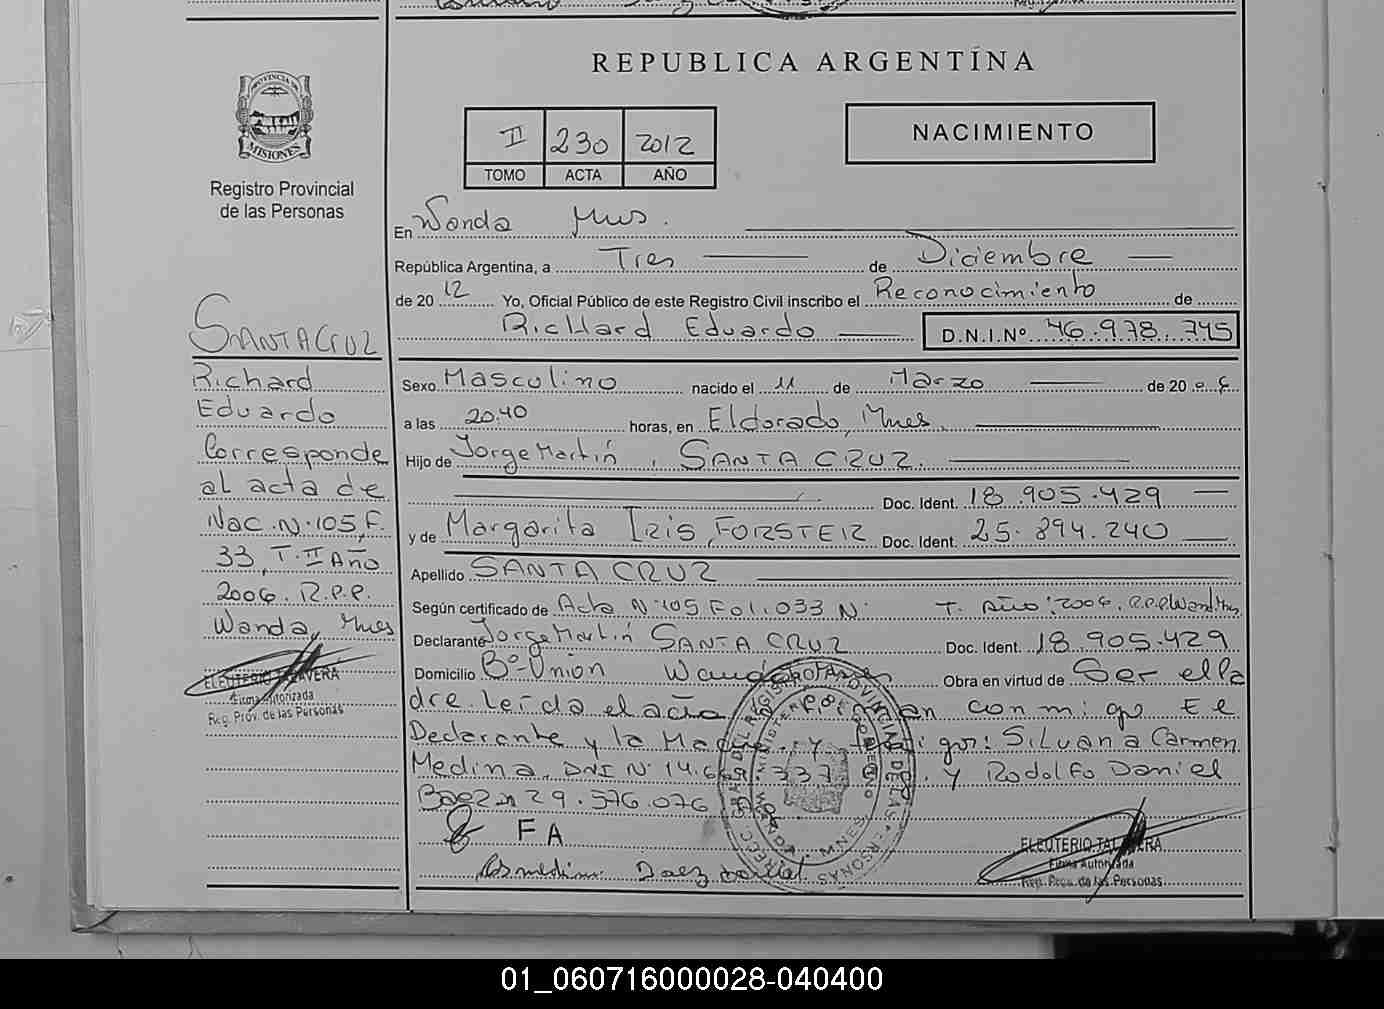 REPUBLICA ARGENTINA
PROVINCIA DE
MISIONES
Registro Provincial
de las Personas
II 230 2012
TOMO ACTA AÑO
NACIMIENTO
En Wanda Mnes.
República Argentina, a Tres de Diciembre
de 20 12 Yo, Oficial Público de este Registro Civil inscribo el Reconocimiento de
Richard Eduardo D.N.I.Nº 46.978.745
Sexo Masculino nacido el 11 de Marzo de 20 06
a las 20:40 horas, en Eldorado, Mnes.
Hijo de Jorge Martín, SANTA CRUZ.
Doc. Ident. 18.905.429
y de Margarita Iris, FORSTER Doc. Ident. 25.894.240
Apellido SANTA CRUZ
Según certificado de Acta Nº 105 Fol. 033 Nº T. Año: 2006. R.P.P. Wanda, Mnes.
Declarante Jorge Martín SANTA CRUZ Doc. Ident. 18.905.429
Domicilio Bº Union Wanda Mnes Obra en virtud de Ser el Pa
dre. Leída el acta conmigo El
Declarante y la Madre y Testigos: Silvana Carmen
Medina, DNI Nº 14.669.337 y Rodolfo Daniel
Baez 29.576.076
F A
Baez Daniel
ELEUTERIO TALAVERA
Firma Autorizada
Reg. Prov. de las Personas
SANTA CRUZ
Richard
Eduardo
Corresponde
al acta de
Nac. Nº 105, F.
33, T. II Año
2006. R.P.P.
Wanda, Mnes
ELEUTERIO TALAVERA
Firma Autorizada
Reg. Prov. de las Personas
01_060716000028-040400